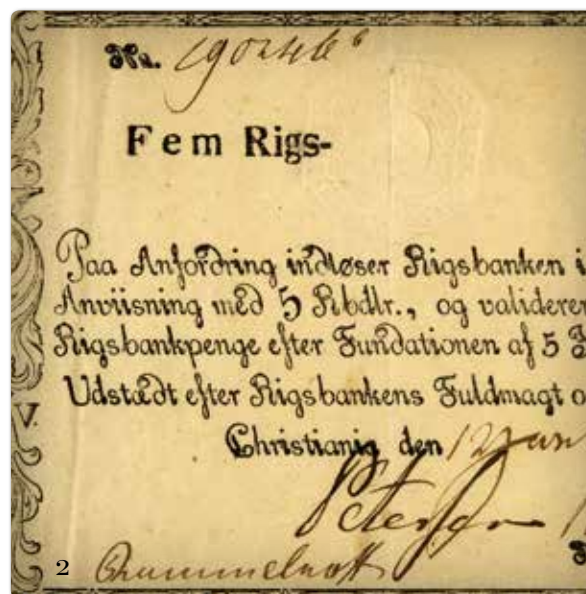 No. 190246
Fem Rigs-
Paa Anfordring indløser Rigsbanken i
Anviisning med 5 Rbdlr., og validerer
Rigsbankpenge efter Fundationen af 5 J
Udstædt efter Rigsbankens Fuldmagt o
V.
Christiania den 12
Petersen
2